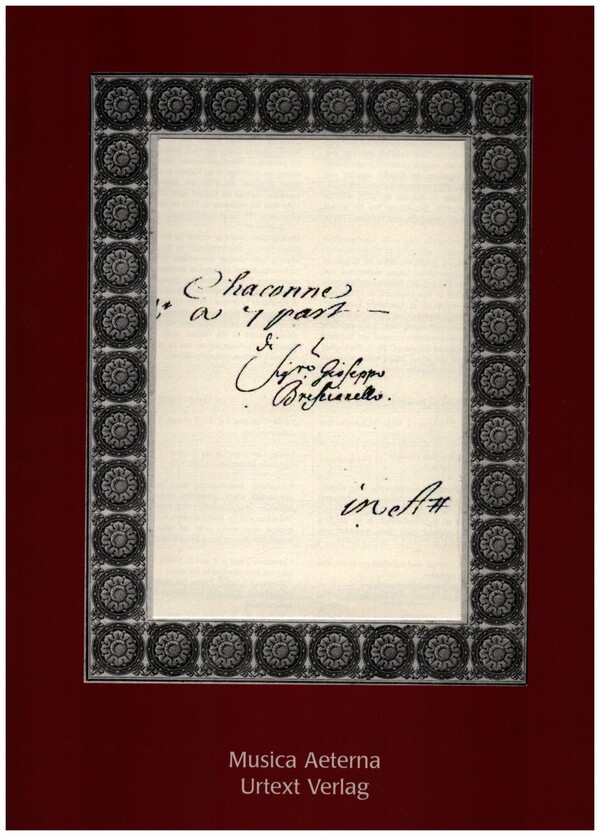 Chaconne
a 7 part
di
Sig.ro Gioseppo
Brescianello.
in A#
Musica Aeterna
Urtext Verlag